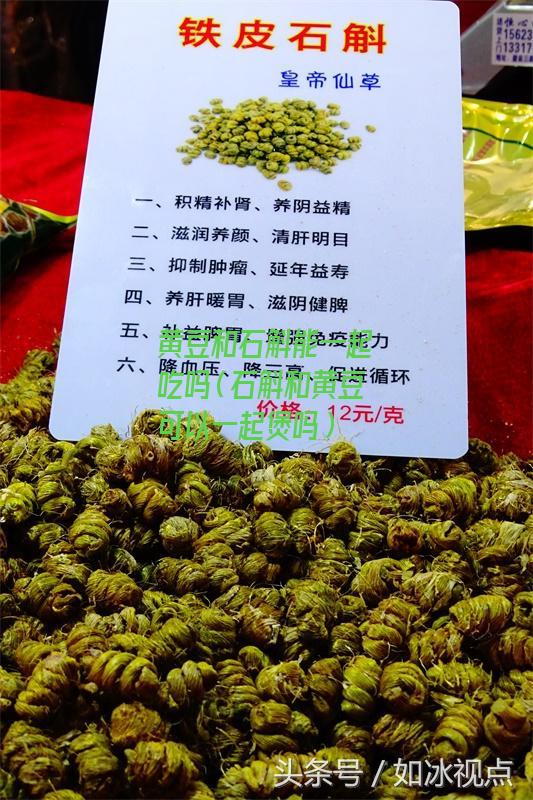 铁皮石斛
皇帝仙草
一、积精补肾、养阴益精
二、滋润养颜、清肝明目
三、抑制肿瘤、延年益寿
四、养肝暖胃、滋阴健脾
五、补益脾胃、增强免疫能力
六、降血压、降三高、促进循环
价格：12元/克
黄豆和石斛能一起
吃吗(石斛和黄豆
可以一起煲吗)
15623
13317
头条号/如冰视点